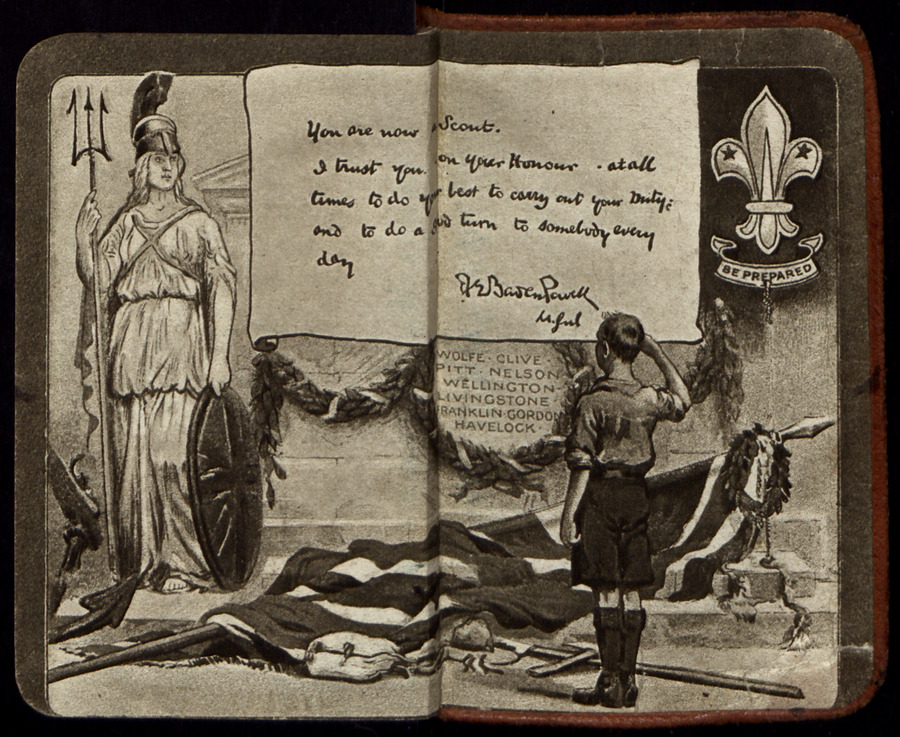 You are now a Scout.
I trust you on your Honour - at all
times to do your best to carry out your Duty:
and to do a good turn to somebody every
day
Baden Powell
BE PREPARED
WOLFE · CLIVE ·
PITT · NELSON
WELLINGTON ·
LIVINGSTONE ·
FRANKLIN · GORDON
HAVELOCK ·